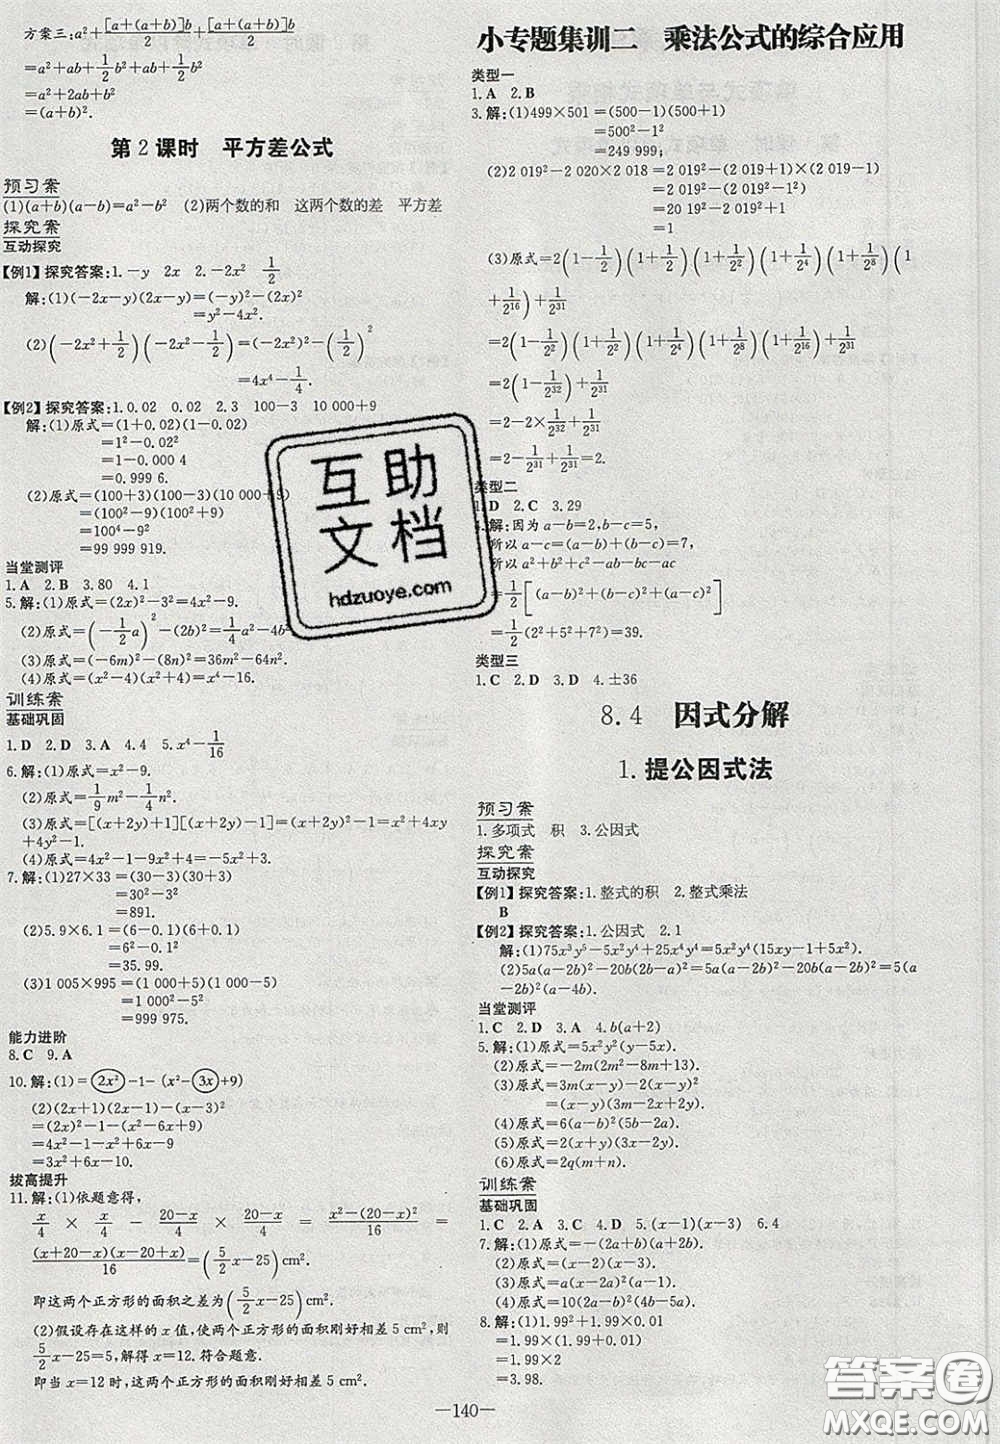 方案三:a²+[a+(a+b)]b/2+[a+(a+b)]b/2
=a²+ab+1/2b²+ab+1/2b²
=a²+2ab+b²
=(a+b)².
第2课时 平方差公式
预习案
(1)(a+b)(a-b)=a²-b² (2)两个数的和 这两个数的差 平方差
探究案
互动探究
【例1】探究答案:1.-y 2x 2.-2x² 1/2
解:(1)(-2x-y)(2x-y)=(-y)²-(2x)²
=y²-4x².
(2)(-2x²+1/2)(-2x²-1/2)=(-2x²)²-(1/2)²
=4x⁴-1/4.
【例2】探究答案:1.0.02 0.02 2.3 100-3 10 000+9
解:(1)原式=(1+0.02)(1-0.02)
=1²-0.02²
=1-0.000 4
=0.999 6.
(2)原式=(100+3)(100-3)(10 000+9)
=(100²-9)(100²+9)
=100⁴-9²
=99 999 919.
当堂测评
1.A 2.B 3.80 4.1
5.解:(1)原式=(2x)²-3²=4x²-9.
(2)原式=(-1/2a)²-(2b)²=1/4a²-4b².
(3)原式=(-6m)²-(8n)²=36m²-64n².
(4)原式=(x²-4)(x²+4)=x⁴-16.
训练案
基础巩固
1.D 2.D 3.A 4.4 5.x⁴-1/16
6.解:(1)原式=x²-9.
(2)原式=1/9m²-1/4n².
(3)原式=[(x+2y)+1][(x+2y)-1]=(x+2y)²-1=x²+4xy
+4y²-1.
(4)原式=4x²-1-9x²+4=-5x²+3.
7.解:(1)27×33=(30-3)(30+3)
=30²-3²
=891.
(2)5.9×6.1=(6-0.1)(6+0.1)
=6²-0.1²
=35.99.
(3)1 005×995=(1 000+5)(1 000-5)
=1 000²-5²
=999 975.
能力进阶
8.C 9.A
10.解:(1)=2x²-1-(x²-3x+9)
(2)(2x+1)(2x-1)-(x-3)²
=(2x)²-1-(x²-6x+9)
=4x²-1-x²+6x-9
=3x²+6x-10.
拔高提升
11.解:(1)依题意得,
x/4×x/4-20-x/4×20-x/4=x²-(20-x)²/16=
(x+20-x)(x-20+x)/16=(5/2x-25)cm²
即这两个正方形的面积之差为(5/2x-25)cm².
(2)假设存在这样的x值,使两个正方形的面积刚好相差5 cm²,则
5/2x-25=5,解得x=12.符合题意.
即当x=12时,这两个正方形的面积刚好相差5 cm².
小专题集训二 乘法公式的综合应用
类型一
1.A 2.B
3.解:(1)499×501=(500-1)(500+1)
=500²-1²
=249 999;
(2)2 019²-2 020×2 018=2 019²-(2 019+1)×(2 019-1)
=2 019²-(2 019²-1²)
=20 19²-2 019²+1
=1
(3)原式=2(1-1/2)(1+1/2)(1+1/2²)(1+1/2⁴)(1+1/2⁸)(1
+1/2¹⁶)+1/2³¹
=2(1-1/2²)(1+1/2²)(1+1/2⁴)(1+1/2⁸)(1+1/2¹⁶)+1/2³¹
=2(1-1/2³²)+1/2³¹
=2-2×1/2³²+1/2³¹
=2-1/2³¹+1/2³¹=2.
类型二
1.D 2.C 3.29
4.解:因为a-b=2,b-c=5,
所以(a-b)+(b-c)=7,
所以a²+b²+c²-ab-bc-ac
=1/2[(a-b)²+(b-c)²+(a-c)²]
=1/2(2²+5²+7²)=39.
类型三
1.C 2.D 3.D 4.±36
8.4 因式分解
1.提公因式法
预习案
1.多项式 积 3.公因式
探究案
互动探究
【例1】探究答案:1.整式的积 2.整式乘法
B
【例2】探究答案:1.公因式 2.1
解:(1)75x³y⁵-5x²y⁴+25x⁴y⁴=5x²y⁴(15xy-1+5x²).
(2)5a(a-2b)²-20b(2b-a)²=5a(a-2b)²-20b(a-2b)²=5(a
-2b)²(a-4b).
当堂测评
1.C 2.D 3.A 4.b(a+2)
5.解:(1)原式=5x²y²(y-5x).
(2)原式=-2m(2m²-8m+13).
(3)原式=3m(x-y)-2(x-y)
=(x-y)(3m-2).
(4)原式=6(a-b)²(3-2a+2b).
(5)原式=2(x+y)(3x-2y).
(6)原式=2q(m+n).
训练案
基础巩固
1.C 2.A 3.C 4.D 5.(x-1)(x-3) 6.4
7.解:(1)原式=-(2a+b)(a+2b).
(2)原式=(x-2)(x-3).
(3)原式=4q(1-p)²(2-p).
(4)原式=10(2a-b)²(3a-2b).
8.解:(1)1.99²+1.99×0.01
=1.99×(1.99+0.01)
=1.99×2
=3.98.
—140—
互助
文档
hdzuoye.com
答案圈
MXQE.COM